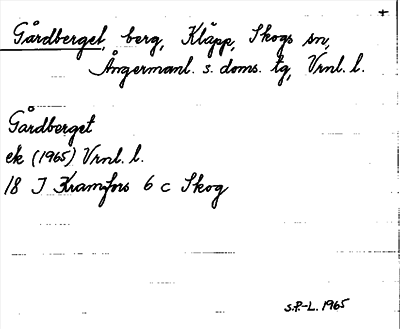 +
Gårdberget, berg, Kläpp, Skogs sn,
Ångermanl. s. doms. tg, Vrnl. l.
Gårdberget
ek (1965) Vrnl. l.
18 J Kramfors 6 c Skog
S.P.-L. 1965